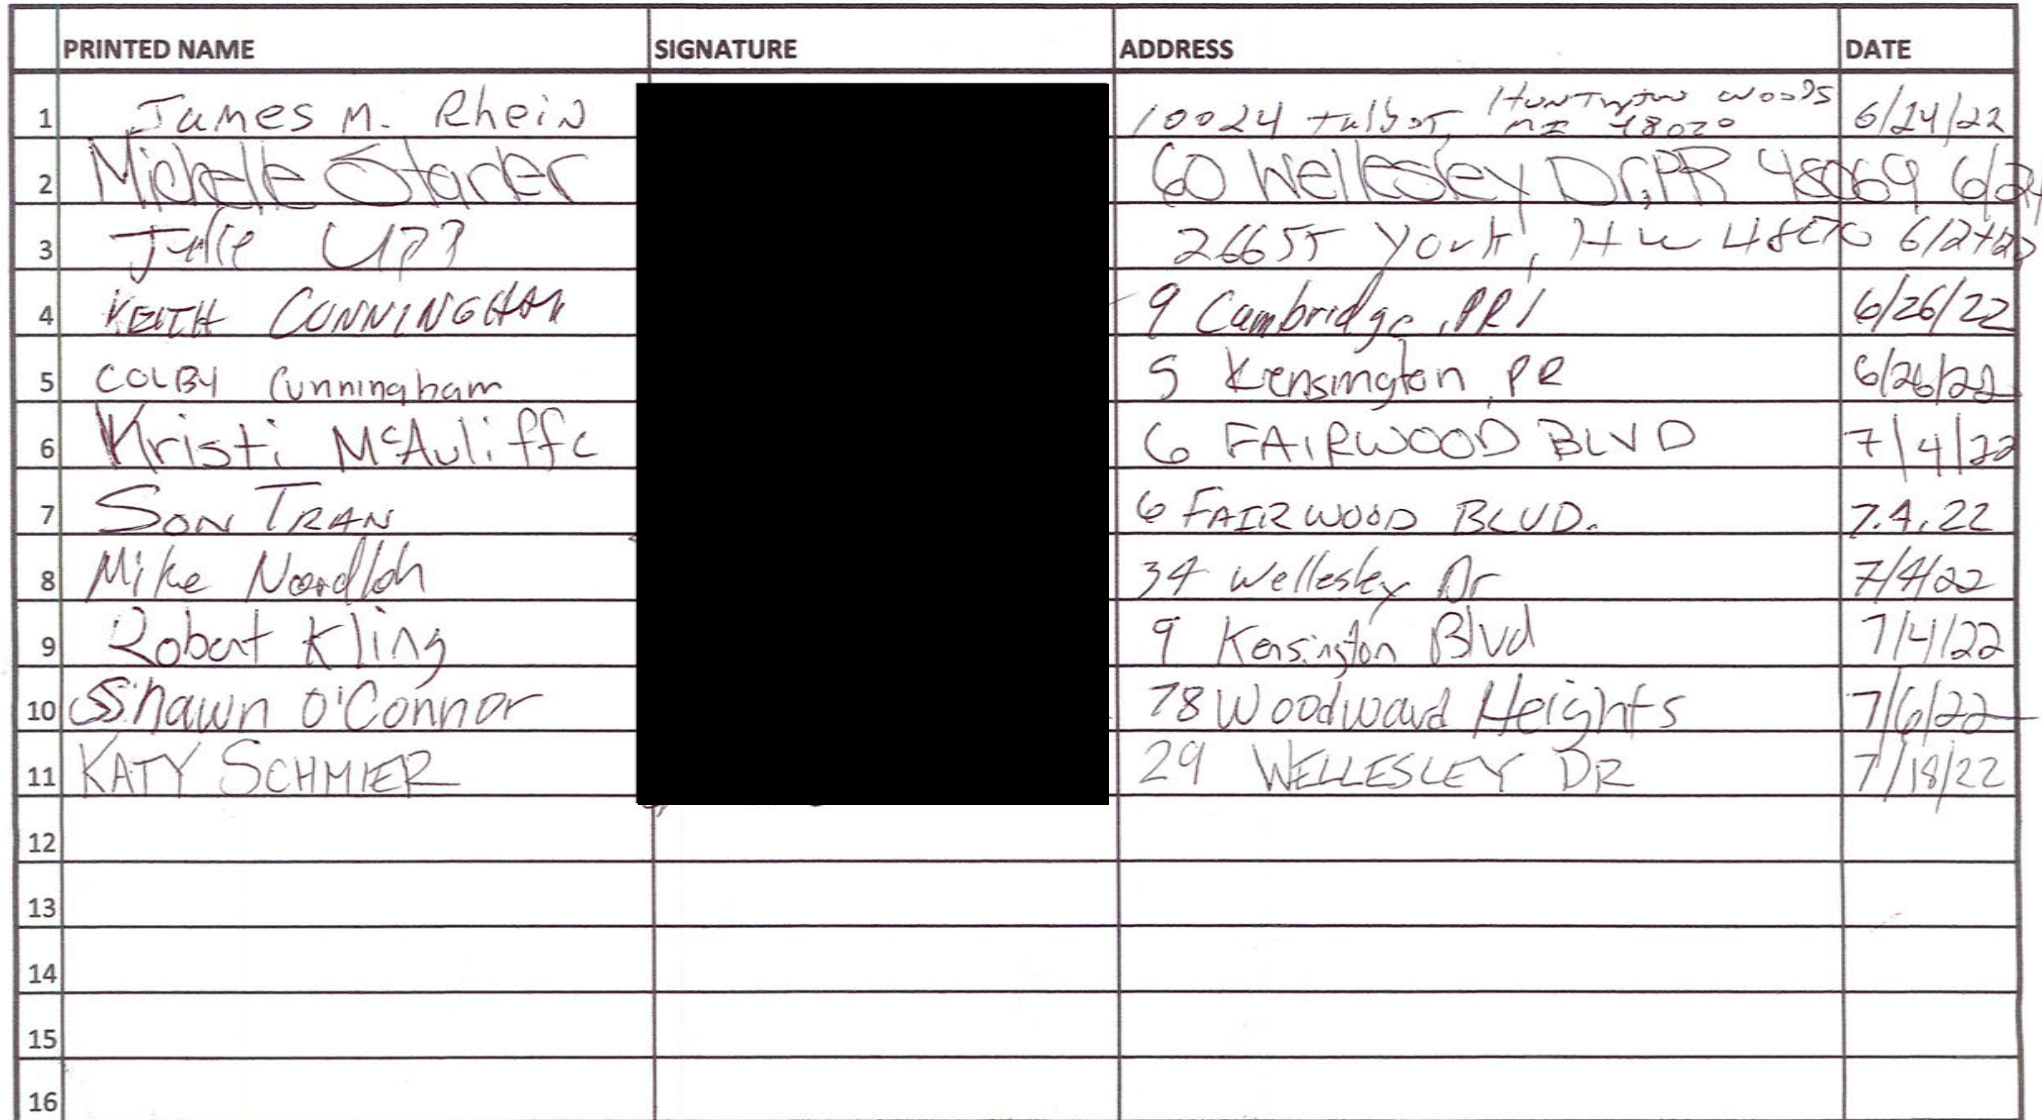 PRINTED NAME SIGNATURE ADDRESS DATE
1 James M. Rhein 10024 talbot, Huntington woods MI 48070 6/24/22
2 Michelle Starler 60 Wellesley Dr, PR 48069 6/24
3 Julie 26655 York, HW 48070
4 KEITH CUNNINGHAM 9 Cambridge, PR 6/26/22
5 COLBY Cunningham 5 Kensington, PR 6/26/22
6 Kristi McAuliffe 6 FAIRWOOD BLVD 7/4/22
7 SON TRAN 6 FAIRWOOD BLVD. 7.4.22
8 Mike Noordloh 34 Wellesley Dr 7/4/22
9 Robert Kling 9 Kensington Blvd 7/4/22
10 Shawn O'Connor 78 Woodward Heights 7/6/22
11 KATY SCHMIER 29 WELLESLEY DR 7/18/22
12
13
14
15
16